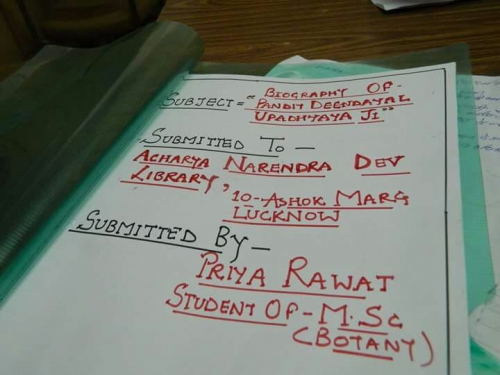 SUBJECT = "BIOGRAPHY OF-
PANDIT DEENDAYAL
UPADHYAYA JI"
SUBMITTED TO -
ACHARYA NARENDRA DEV
LIBRARY,
10-ASHOK MARG
LUCKNOW
SUBMITTED BY -
PRIYA RAWAT
STUDENT OF - M.Sc
(BOTANY)